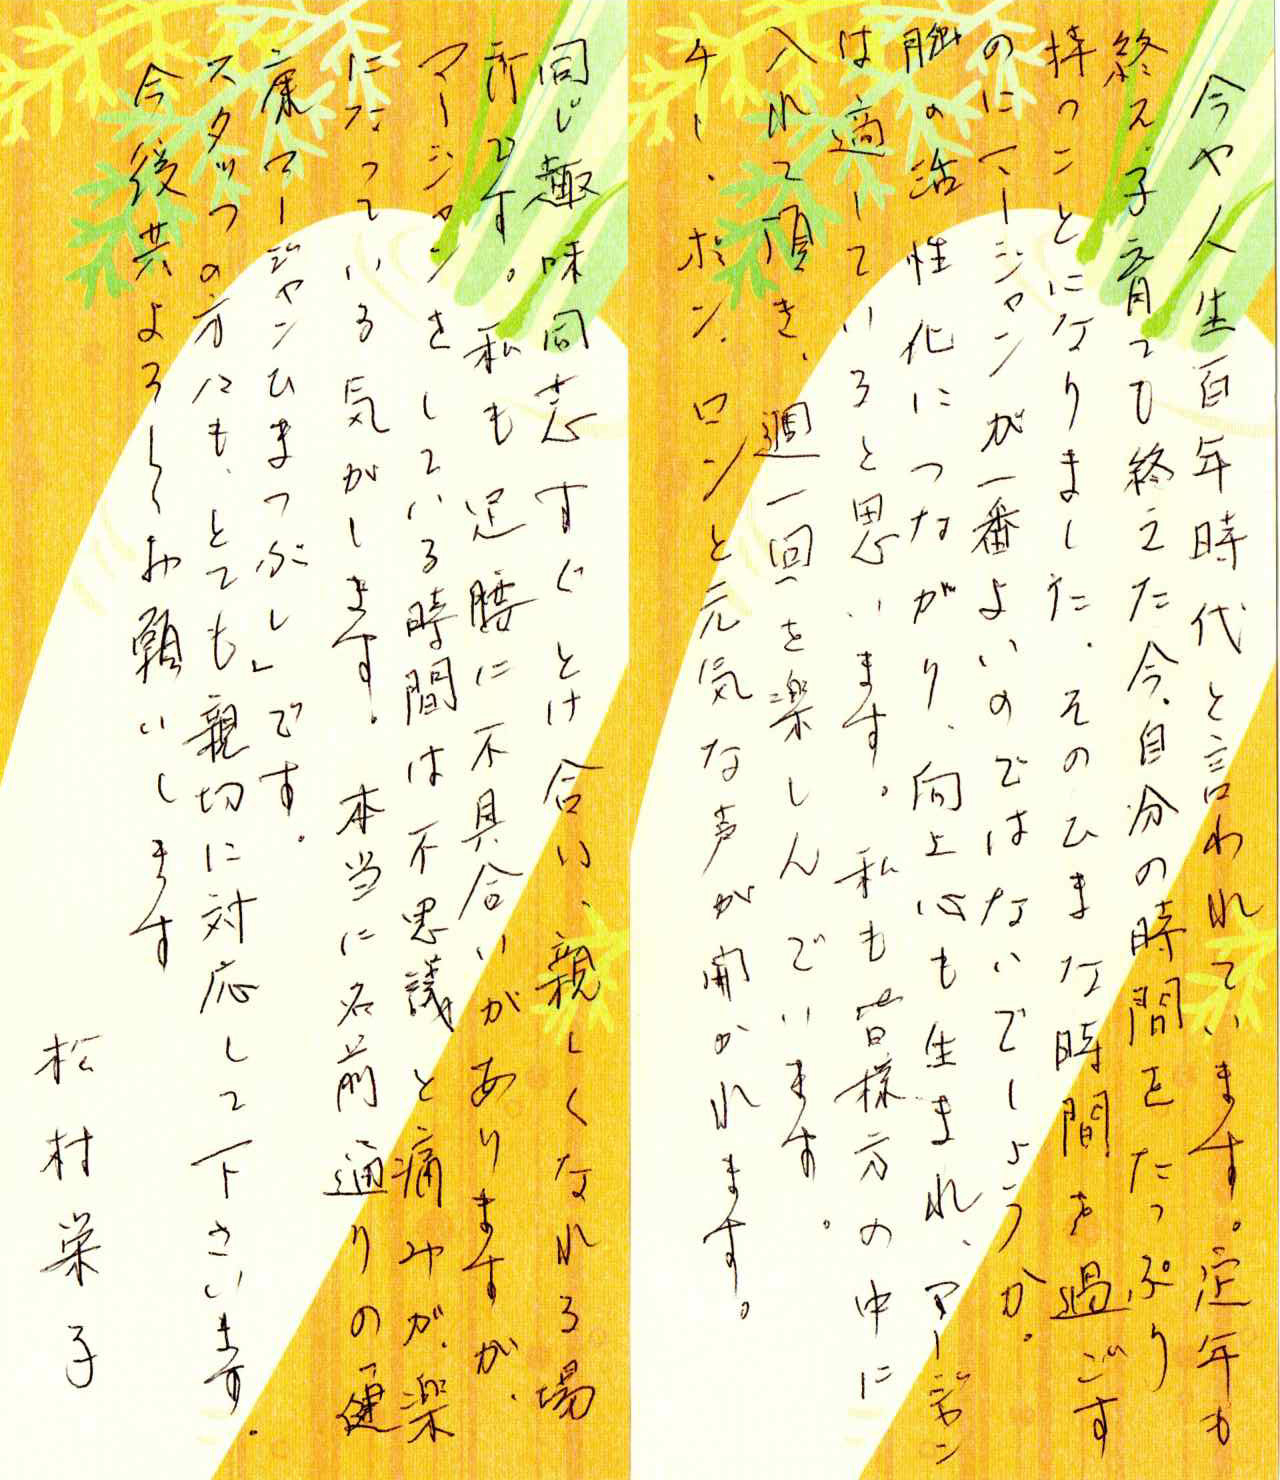 今や人生百年時代と言われています。定年も
終え、子育ても終えた今、自分の時間をたっぷり
持つことになりました。そのひまな時間を過ごす
のにマージャンが一番よいのではないでしょうか。
脳の活性化につながり、向上心も生まれ、マージャン
は適していると思います。私も皆様方の中に
入れて頂き、週一回を楽しんでいます。
チー、ポン、ロンと元気な声が聞かれます。
同じ趣味同志すぐとけ合い、親しくなれる場
所です。私も足腰に不具合いがありますが、
マージャンをしている時間は不思議と痛みが楽
になっている気がします。本当に名前通りの「健
康マージャンひまつぶし」です。
スタッフの方にも、とても親切に対応して下さいます。
今後共よろしくお願いします
松村栄子